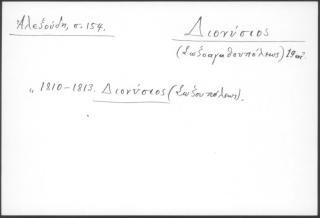 Ἀλεξούδη, σ. 154.
Διονύσιος
(Σωζοαγαθουπόλεως) 19 αἰ.
„ 1810-1813. Διονύσιος (Σωζουπόλεως).